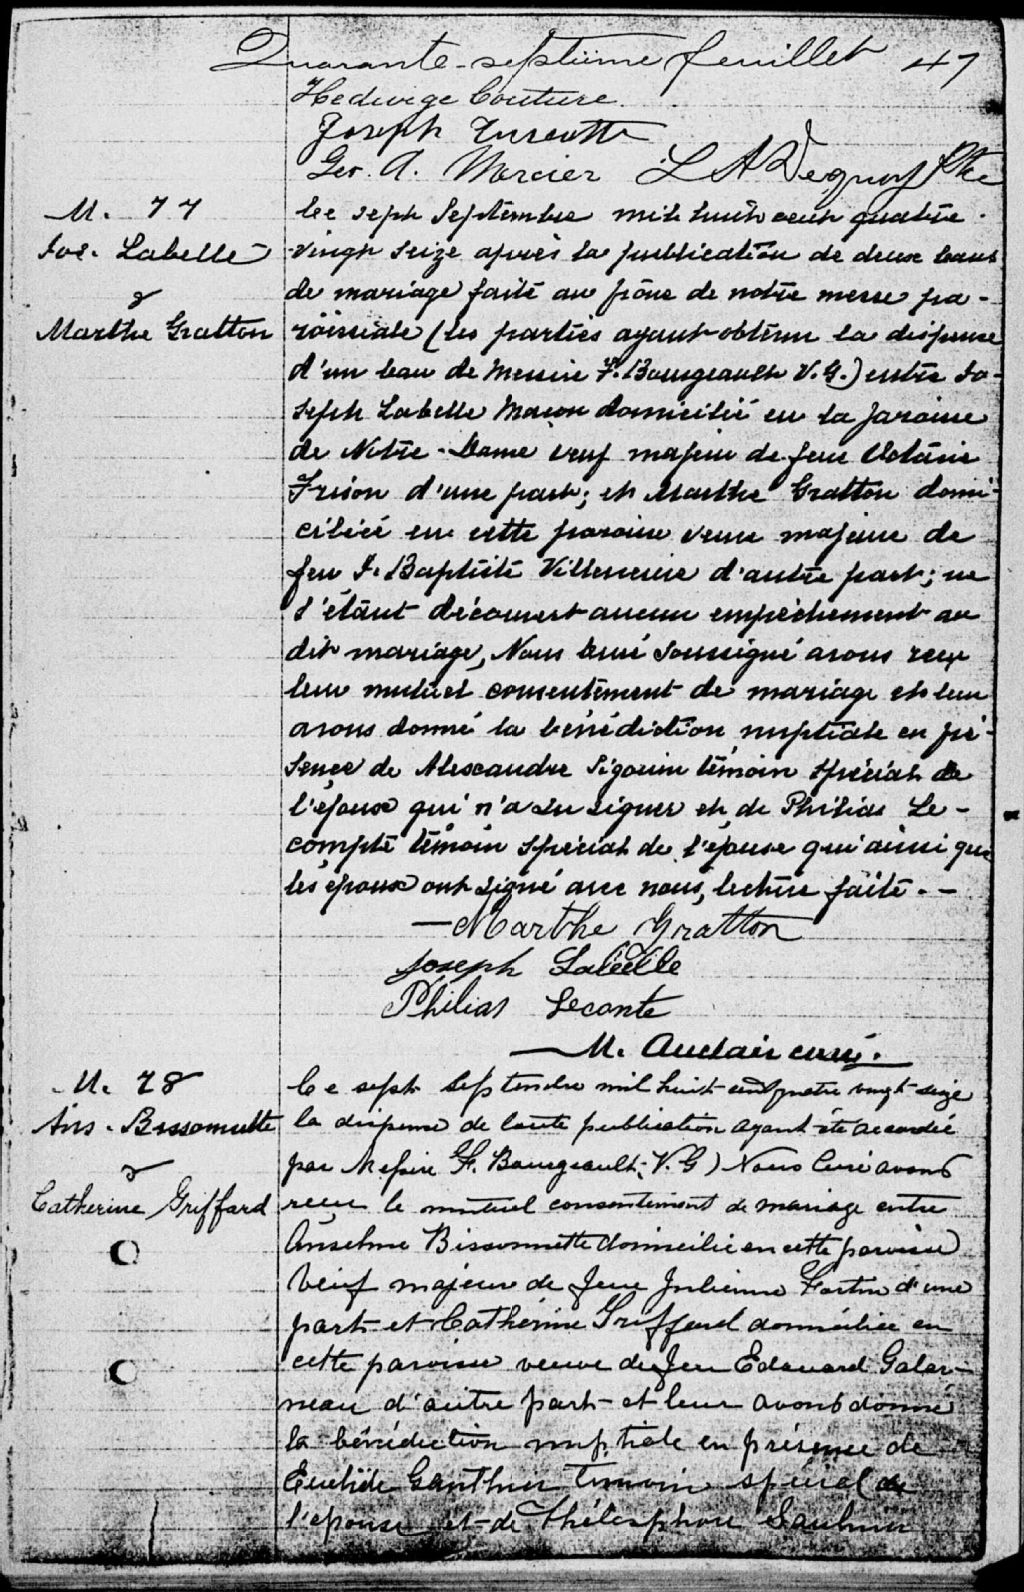 Quarante-septième feuillet 47
Hedwige Couture
Joseph Turcotte
Geo. A. Mercier L A Ptre
M. 77
Jos. Labelle
&
Marthe Gratton
Le sept Septembre mil huit cent quatre-
vingt seize après la publication de deux bans
de mariage faite au prône de notre messe pa-
roissiale (les parties ayant obtenu la dispense
d'un ban de Messire F. Bourgeault V.G.) entre Jo-
seph Labelle Maçon domicilié en la paroisse
de Notre-Dame veuf majeur de feue
Frison d'une part; et Marthe Gratton domi-
ciliée en cette paroisse veuve majeure de
feu J. Baptiste Villeneuve d'autre part; ne
s'étant découvert aucun empêchement au
dit mariage, Nous Curé soussigné avons reçu
leur mutuel consentement de mariage et leur
avons donné la bénédiction nuptiale en pré-
sence de Alexandre Sigouin témoin spécial de
l'époux qui n'a su signer et de Philias Le-
compte témoin spécial de l'épouse qui ainsi que
les époux ont signé avec nous, lecture faite. -
Marthe Gratton
Joseph Labelle
Philias Leconte
M. Auclair curé.
M. 78
Ans. Bissonnette
&
Catherine Griffard
Ce sept Septembre mil huit cent quatre vingt-seize
la dispense de toute publication ayant été accordée
par Messire F. Bourgeault, V.G) Nous Curé avons
reçu le mutuel consentement de mariage entre
Anselme Bissonnette domicilié en cette paroisse
Veuf majeur de feue Julienne Fortin d'une
part et Cathérine Griffard domiciliée en
cette paroisse veuve de feu Edouard Galar-
neau d'autre part et leur avons donné
la bénédiction nuptiale en présence de
Euclide Gauthier témoin spécial de
l'épouse et de Thélesphore Saulnier